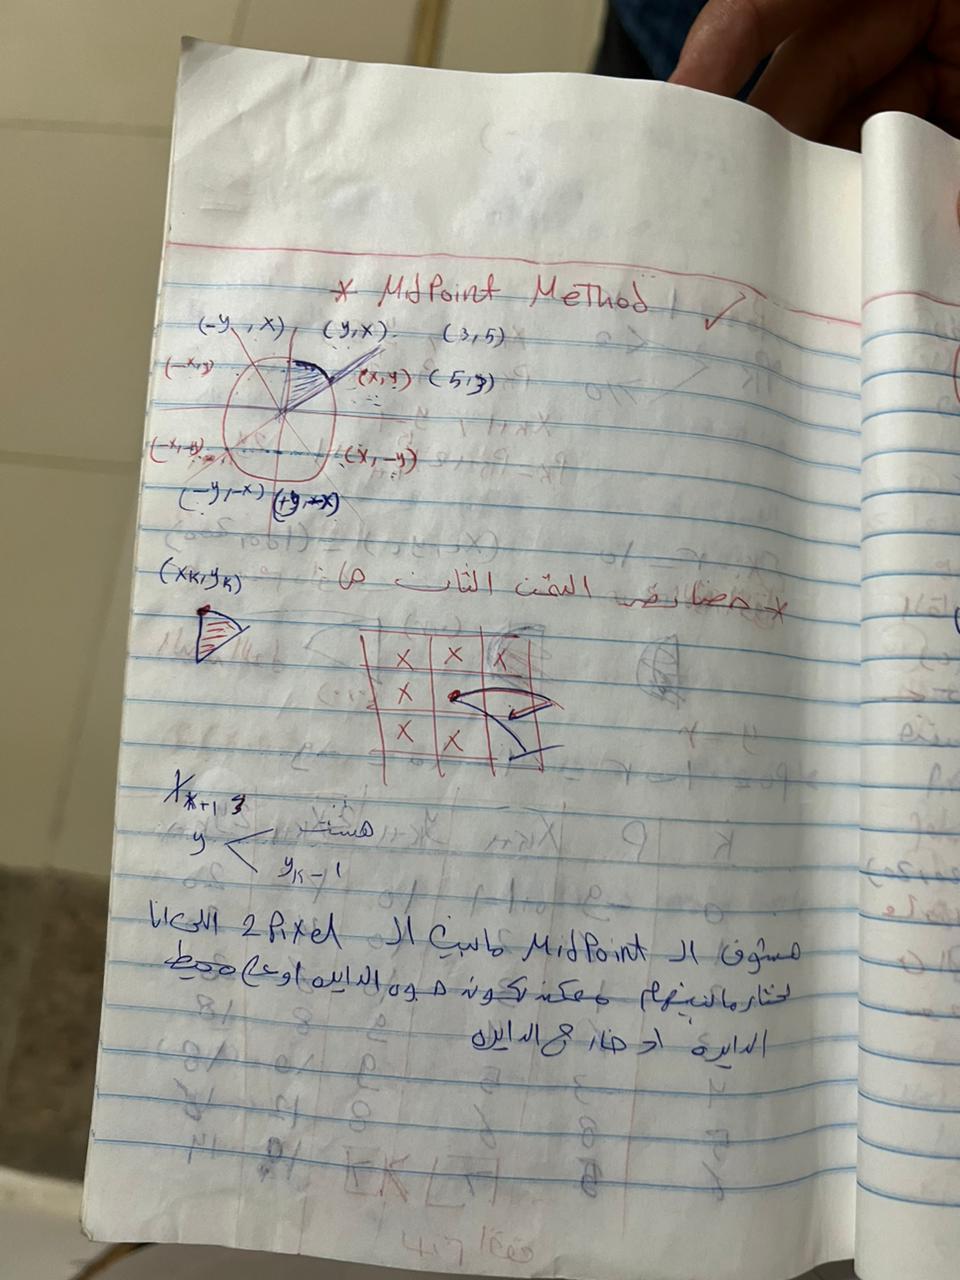 * MidPoint Method ✓
(-y, x) (y,x) (3,5)
(-x,y) (x,y) (5,3)
(-x,-y) (x,-y)
(-y,-x) (+y,-x)
(xK,yK)
* خصائص الثمن الثاني
x x x
x
x x
yK-1
هنشوف الـ MidPoint مابين الـ 2 Pixel اللي انا
بختار مابينهم ممكن تكون جوه الدايره او على محيط
الدايرة او خارج الدايره